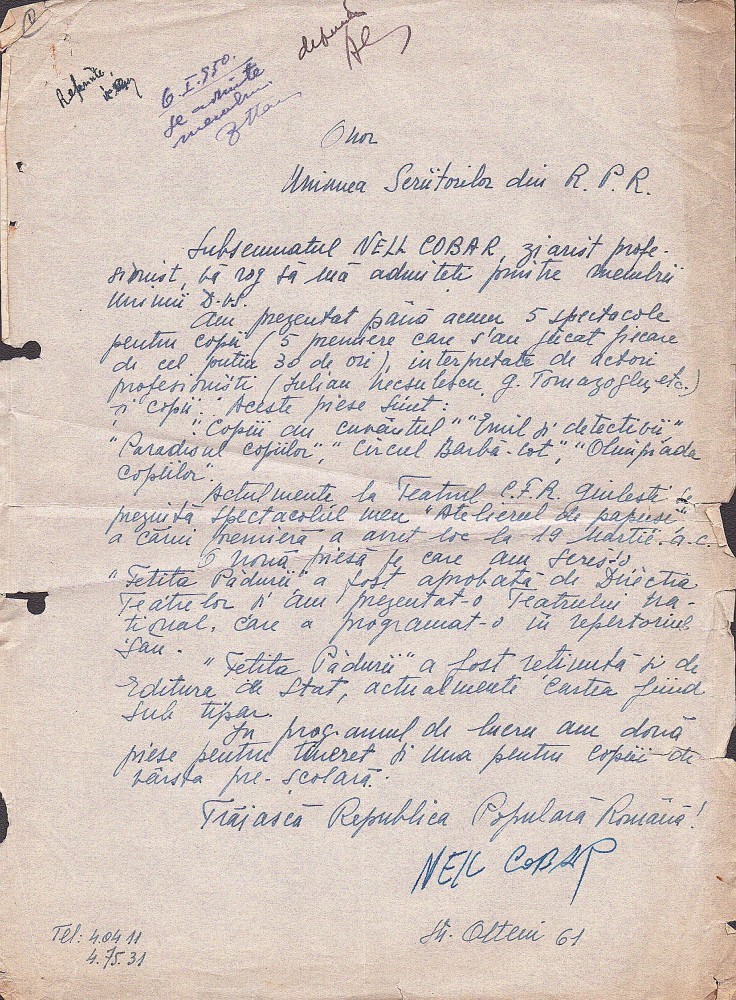 Referințe
6.I.950.
se admite
Onor
Uniunea Scriitorilor din R. P. R.
Subsemnatul NELL COBAR, ziarist profe-
sionist, vă rog să mă admiteți printre membrii
Uniunii D-vs.
Am prezentat până acum 5 spectacole
pentru copii (5 premiere care s'au jucat fiecare
de cel puțin 30 de ori), interpretate de actori
profesioniști (Iulian Necșulescu, G. Tomazoglu, etc.)
și copii. Aceste piese sunt:
"Copiii au cuvântul" "Emil și detectivii",
"Paradisul copiilor", "Circul Barbă-Cot", "Olimpiada
copiilor".
Actulmente la Teatrul C.F.R. Giulești se
prezintă spectacolul meu "Atelierul de păpuși"
a cărui premieră a avut loc la 19 Martie. a.c.
O nouă piesă pe care am scris-o
"Fetița Pădurii" a fost aprobată de Direcția
Teatrelor și am prezentat-o Teatrului Na-
țional, care a programat-o în repertoriul
său.
"Fetița Pădurii" a fost reținută și de
Editura de Stat, actualmente cartea fiind
sub tipar.
In programul de lucru am două
piese pentru tineret și una pentru copiii de
vârsta pre-școlară.
Trăiască Republica Populară Română!
NELL COBAR
Tel: 4.04.11
4.75.31
Str. Olteni 61